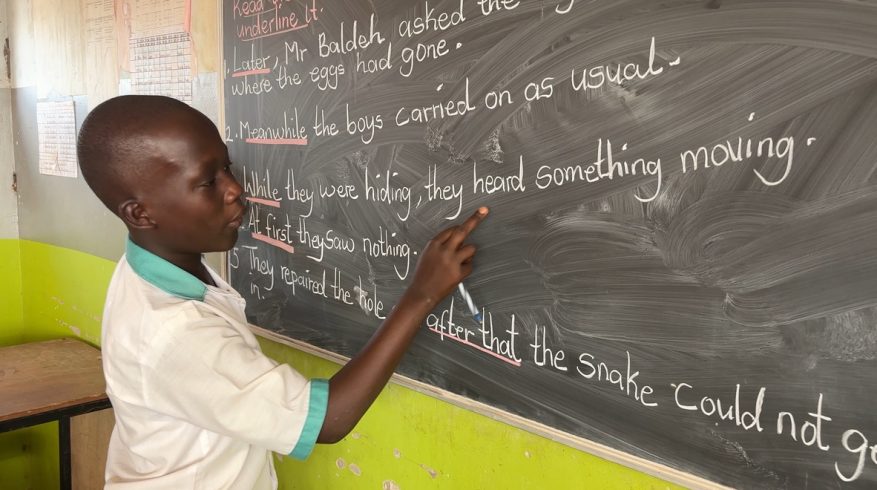 Read
underline it.
1. Later, Mr Baldeh asked the
where the eggs had gone.
2. Meanwhile the boys carried on as usual.
While they were hiding, they heard something moving.
At first they saw nothing.
5 They repaired the hole after that the snake could not go
in.